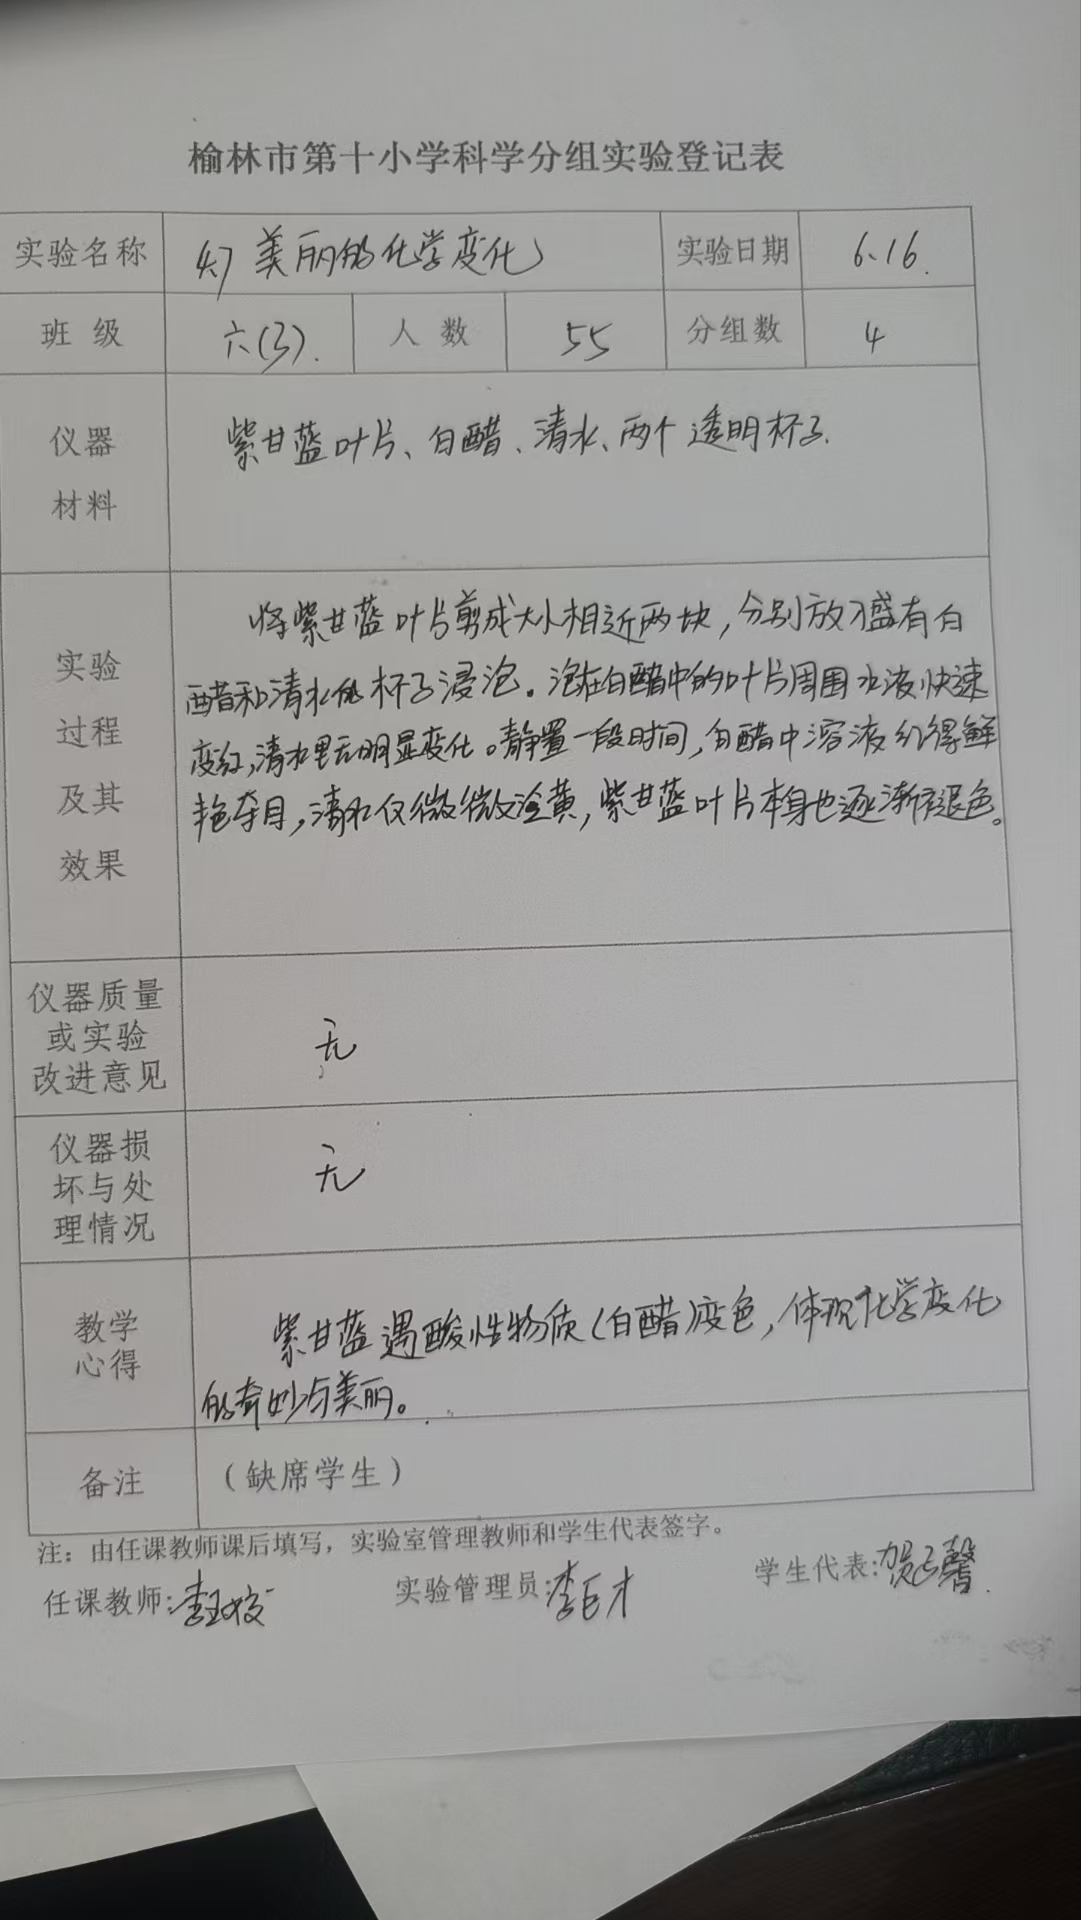 榆林市第十小学科学分组实验登记表
实验名称 (4) 美丽的化学变化 实验日期 6.16.
班 级 六(3). 人 数 55 分组数 4
仪器
材料
紫甘蓝叶片、白醋、清水、两个透明杯子.
实验
过程
及其
效果
将紫甘蓝叶片剪成大小相近两块，分别放入盛有白
醋和清水的杯子浸泡。泡在白醋中的叶片周围水液快速
变红，清水里无明显变化。静置一段时间，白醋中溶液红得鲜
艳夺目，清水仅微微泛黄，紫甘蓝叶片本身也逐渐褪色。
仪器质量
或实验
改进意见
无
仪器损
坏与处
理情况
无
教学
心得
紫甘蓝遇酸性物质(白醋)变色，体现化学变化
的奇妙与美丽。
备注 （缺席学生）
注：由任课教师课后填写，实验室管理教师和学生代表签字。
任课教师： 实验管理员：李巨才 学生代表：